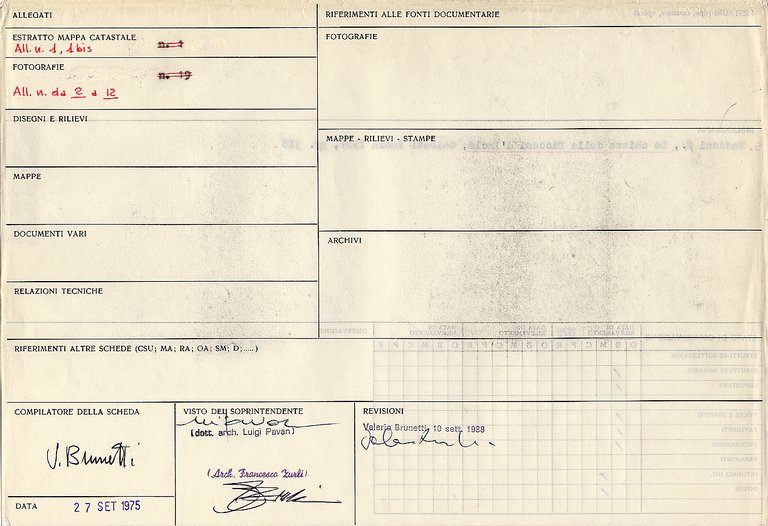 ALLEGATI
ESTRATTO MAPPA CATASTALE
All. n. 1, 1 bis
n. 1
FOTOGRAFIE
n. 19
All. n. da 2 a 12
DISEGNI E RILIEVI
MAPPE
DOCUMENTI VARI
RELAZIONI TECNICHE
RIFERIMENTI ALLE FONTI DOCUMENTARIE
FOTOGRAFIE
MAPPE - RILIEVI - STAMPE
ARCHIVI
RIFERIMENTI ALTRE SCHEDE (CSU; MA; RA; OA; SM; D;.....)
COMPILATORE DELLA SCHEDA
V. Brunetti
DATA
27 SET 1975
VISTO DEL SOPRINTENDENTE
(dott. arch. Luigi Pavan)
(Arch. Francesco Zurli)
REVISIONI
Valeria Brunetti, 10 sett. 1988